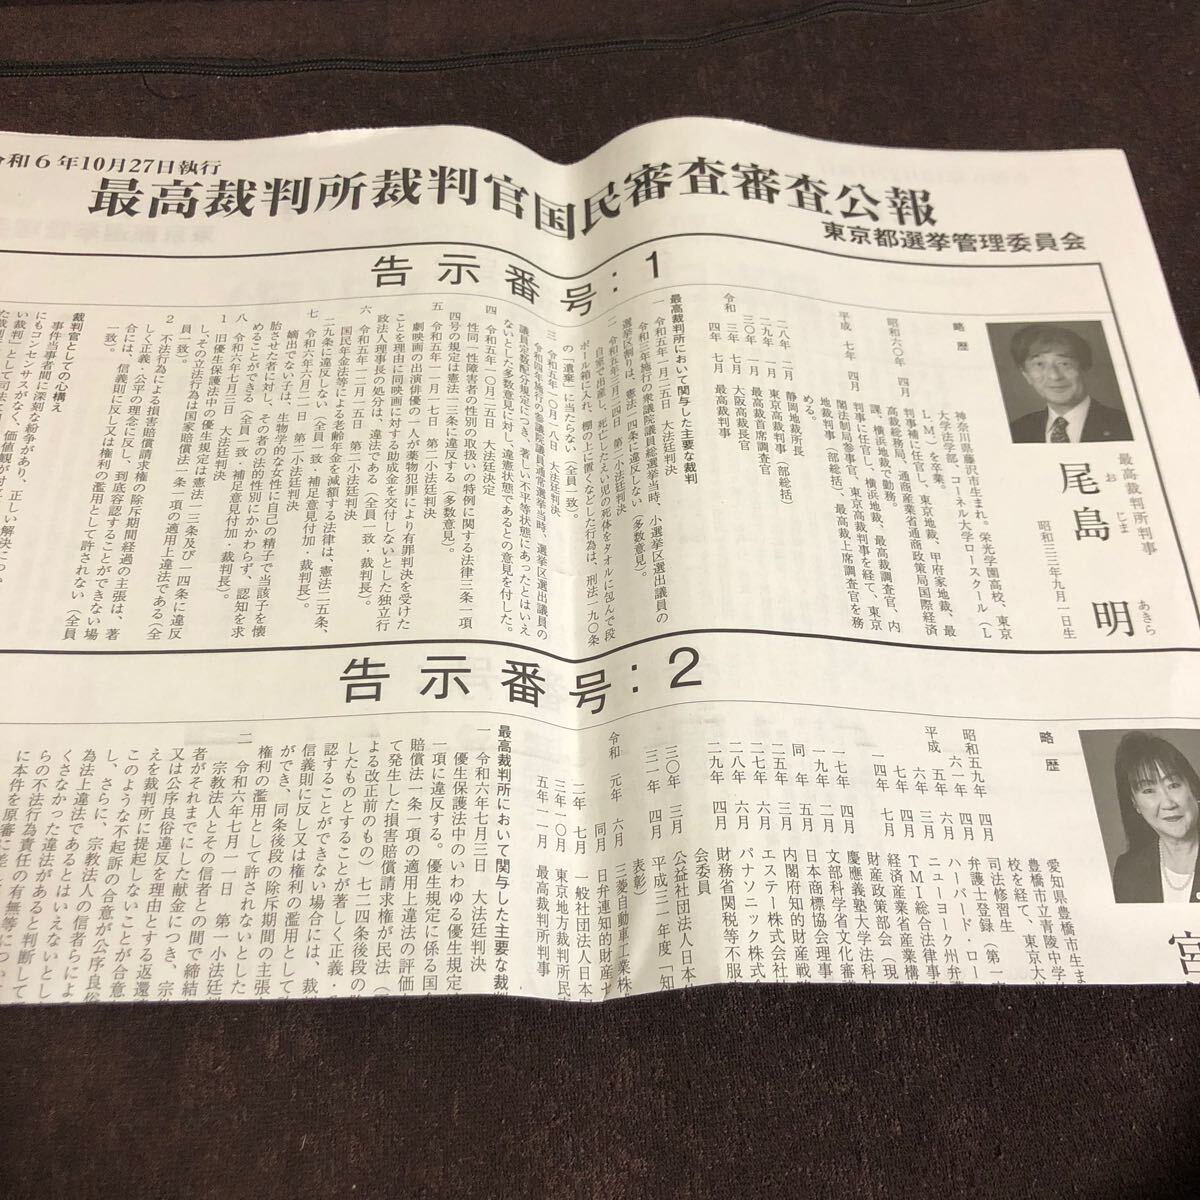 和6年10月27日執行
最高裁判所裁判官国民審査審査公報
東京都選挙管理委員会
告示番号：1
最高裁判所判事
尾島 明
お じま あきら
昭和三三年九月一日生
略歴
神奈川県藤沢市生まれ。栄光学園高校、東京
大学法学部、コーネル大学ロースクール（L
L M）を卒業。
昭和六〇年 四月 判事補に任官し、東京地裁、甲府家地裁、最
高裁総務局、通商産業省通商政策局国際経済
課、横浜地裁で勤務。
平成 七年 四月 判事に任官し、横浜地裁、最高裁調査官、内
閣法制局参事官、東京高裁判事を経て、東京
地裁判事（部総括）、最高裁上席調査官を務
める。
二八年 二月 静岡地裁所長
二九年 一月 東京高裁判事（部総括）
三〇年 一月 最高裁首席調査官
令和 三年 七月 大阪高裁長官
四年 七月 最高裁判事
最高裁判所において関与した主要な裁判
一 令和五年一月二五日 大法廷判決
令和三年施行の衆議院議員総選挙当時、小選挙区選出議員の
選挙区割りは、憲法一四条に違反しない（多数意見）。
二 令和五年三月二四日 第二小法廷判決
自室で出産し、死亡したえい児の死体をタオルに包んで段
ボール箱に入れ、棚の上に置くなどした行為は、刑法一九〇条
の「遺棄」に当たらない（全員一致）。
三 令和五年一〇月一八日 大法廷判決
令和四年施行の参議院議員通常選挙当時、選挙区選出議員の
議員定数配分規定につき、著しい不平等状態にあったとはいえ
ないとした多数意見に対し、違憲状態であるとの意見を付した。
四 令和五年一〇月二五日 大法廷決定
性同一性障害者の性別の取扱いの特例に関する法律三条一項
四号の規定は憲法一三条に違反する（多数意見）。
五 令和五年一一月一七日 第二小法廷判決
劇映画の出演俳優の一人が薬物犯罪により有罪判決を受けた
ことを理由に同映画に対する助成金を交付しないとした独立行
政法人理事長の処分は、違法である（全員一致・裁判長）。
六 令和五年一二月一五日 第二小法廷判決
国民年金法等による老齢年金を減額する法律は、憲法二五条、
二九条に違反しない（全員一致・補足意見付加・裁判長）。
七 令和六年六月二一日 第二小法廷判決
嫡出でない子は、生物学的な女性に自己の精子で当該子を懐
胎させた者に対し、その者の法的性別にかかわらず、認知を求
めることができる（全員一致・補足意見付加・裁判長）。
八 令和六年七月三日 大法廷判決
1 旧優生保護法中の優生規定は憲法一三条及び一四条に違反
し、その立法行為は国家賠償法一条一項の適用上違法である（全
員一致）。
2 不法行為による損害賠償請求権の除斥期間経過の主張は、著
しく正義・公平の理念に反し、到底容認することができない場
合には、信義則に反し又は権利の濫用として許されない（全員
一致）。
裁判官としての心構え
事件当事者間に深刻な紛争があり、正しい解決につ
にもコンセンサスがなく、価値観が対
い裁判」として司法
告示番号：2
略歴
愛知県豊橋市生ま
豊橋市立青陵中学
校を経て、東京大
昭和五九年 四月 司法修習生
六一年 四月 弁護士登録（第一
平成 五年 六月 ハーバード・ロー
六年 三月 ニューヨーク州弁
七年 四月 TMI総合法律事
一四年 七月 経済産業省産業構
財産政策部会（現
一七年 四月 慶應義塾大学法科
一九年 二月 文部科学省文化審
同年 五月 日本商標協会理事
二五年 三月 内閣府知的財産戦
二六年 六月 エステー株式会社
二八年 六月 パナソニック株式会
二九年 四月 財務省関税等不服
会委員
三〇年 三月 公益社団法人日本
三一年 四月 平成三一年度「知
表彰）
令和 元年 六月 三菱自動車工業株
同月 日弁連知的財産セ
二年 七月 一般社団法人日本国
三年一〇月 東京地方裁判所民
五年一一月 最高裁判所判事
最高裁判所において関与した主要な裁判
一 令和六年七月三日 大法廷判決
優生保護法中のいわゆる優生規定
一項に違反する。優生規定に係る国会
賠償法一条一項の適用上違法の評価
て発生した損害賠償請求権が民法（
よる改正前のもの）七二四条後段の
したものとすることが著しく正義・
認することができない場合には、裁判
信義則に反し又は権利の濫用として
ができ、同条後段の除斥期間の主張
権利の濫用として許されないとした
二 令和六年七月一一日 第一小法廷判
宗教法人とその信者との間で締結
者がそれまでにした献金につき、
又は公序良俗違反を理由とする返還
えを裁判所に提起しないことが合意
このような不起訴の合意が公序良俗
し、さらに、宗教法人の信者らによ
為法上違法であるとはいえないと
くさなかった違法があると判断して
らの不法行為責任の有無等につい
に本件を原審に差